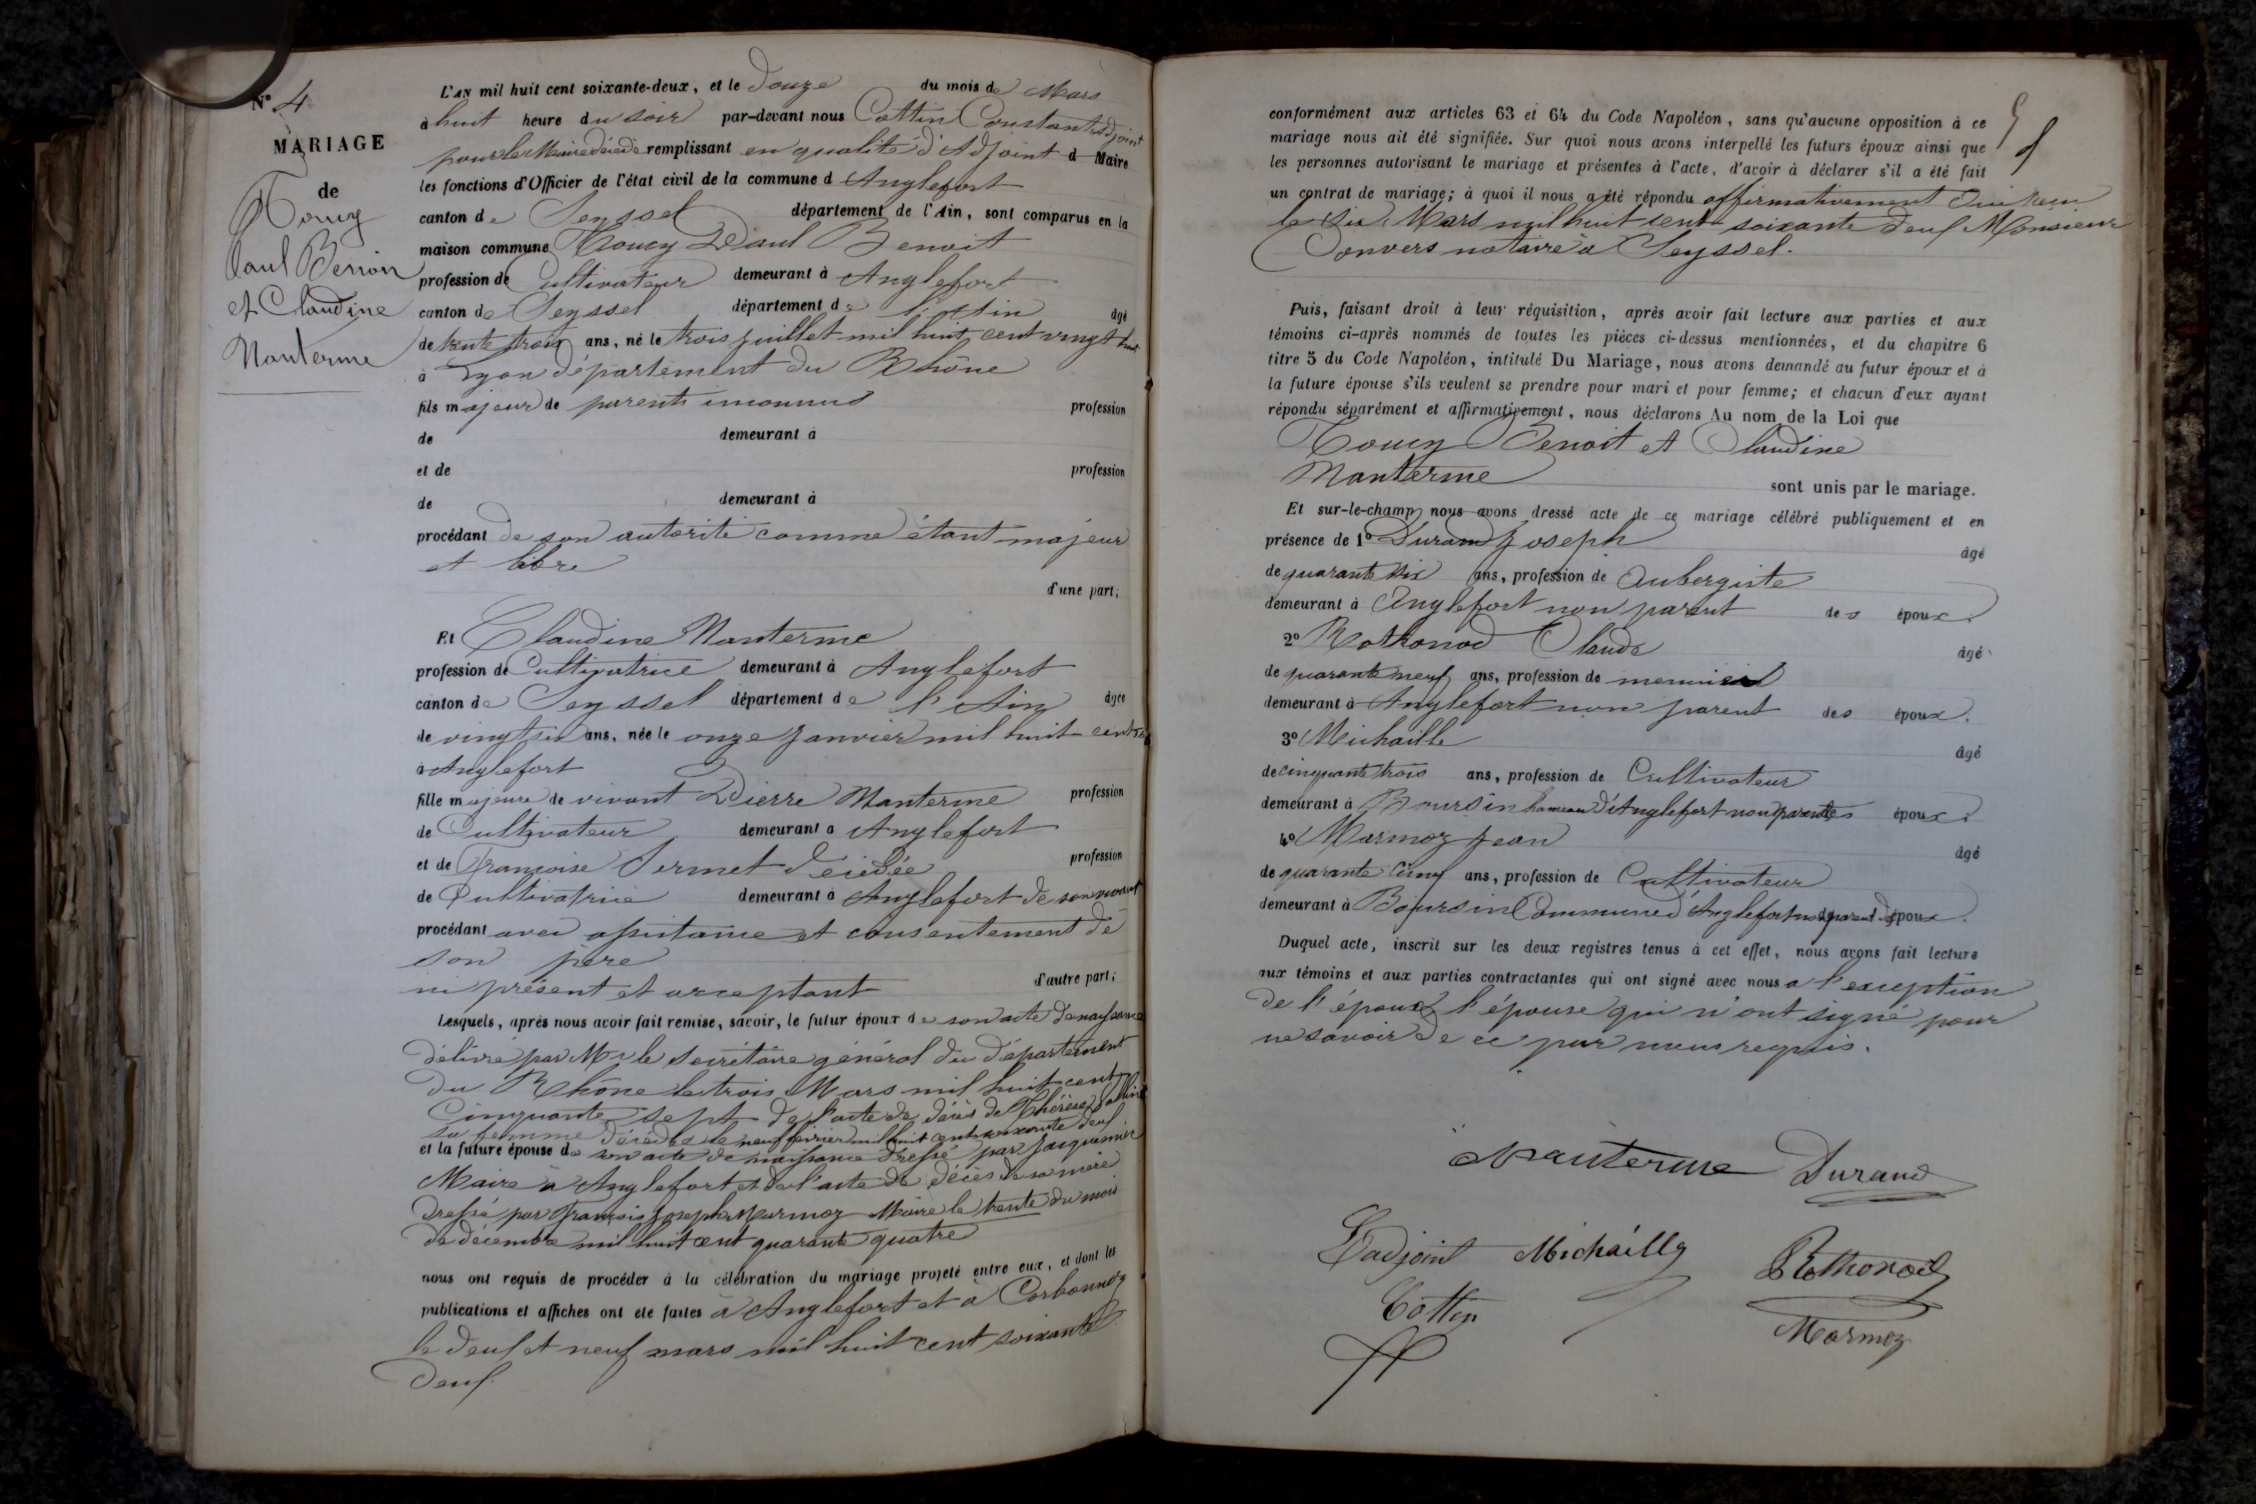 N° 4
MARIAGE
de
Toucy
Paul Benoit
et Claudine
Manterme
L'AN mil huit cent soixante-deux, et le douze du mois de Mars
à huit heure du soir par-devant nous Cottin Constant adjoint
pour le Maire décédé remplissant en qualité d'Adjoint d Maire
les fonctions d'Officier de l'état civil de la commune d Anglefort
canton de Seyssel département de l'Ain, sont comparus en la
maison commune Toucy Paul Benoit
profession de Cultivateur demeurant à Anglefort
canton de Seyssel département de l'Ain âgé
de trente trois ans, né le trois juillet mil huit cent vingt huit
à Lyon département du Rhône
fils majeur de parents inconnus profession
de demeurant à
et de profession
de demeurant à
procédant de son autorité comme étant majeur
et libre
d'une part;
Et Claudine Manterme
profession de Cultivatrice demeurant à Anglefort
canton de Seyssel département de l'Ain âgée
de vingt six ans, née le onze janvier mil huit cent
à Anglefort
fille majeure de vivant Pierre Manterme profession
de Cultivateur demeurant à Anglefort
et de Françoise Sermet décédée profession
de Cultivatrice demeurant à Anglefort de son vivant
procédant avec assistance et consentement de
son père
ici présent et acceptant d'autre part;
Lesquels, après nous avoir fait remise, savoir, le futur époux de son acte de naissance
délivré par Mr le Secrétaire général du département
du Rhône le trois Mars mil huit cent
Cinquante sept de l'acte de décès de Thérèse
sa femme décédée le neuf février mil huit cent soixante deux
et la future épouse de son acte de naissance dressé par Jacquemier
Maire à Anglefort et de l'acte de décès de sa mère
dressé par François Joseph Marmoz Maire le trente du mois
de décembre mil huit cent quarante quatre
nous ont requis de procéder à la célébration du mariage projeté entre eux, et dont les
publications et affiches ont été faites à Anglefort et à Corbonnoz
le deux et neuf mars mil huit cent soixante
deux.
conformément aux articles 63 et 64 du Code Napoléon, sans qu'aucune opposition à ce
mariage nous ait été signifiée. Sur quoi nous avons interpellé les futurs époux ainsi que
les personnes autorisant le mariage et présentes à l'acte, d'avoir à déclarer s'il a été fait
un contrat de mariage; à quoi il nous a été répondu affirmativement Oui
le six Mars mil huit cent soixante deux Monsieur
Convers notaire à Seyssel.
Puis, faisant droit à leur réquisition, après avoir fait lecture aux parties et aux
témoins ci-après nommés de toutes les pièces ci-dessus mentionnées, et du chapitre 6
titre 5 du Code Napoléon, intitulé Du Mariage, nous avons demandé au futur époux et à
la future épouse s'ils veulent se prendre pour mari et pour femme; et chacun d'eux ayant
répondu séparément et affirmativement, nous déclarons Au nom de la Loi que
Toucy Benoit et Claudine
Manterme
sont unis par le mariage.
Et sur-le-champ nous avons dressé acte de ce mariage célébré publiquement et en
présence de 1° Durand Joseph âgé
de quarante six ans, profession de Aubergiste
demeurant à Anglefort non parent des époux.
2° Rothonod Claude âgé
de quarante neuf ans, profession de menuisier
demeurant à Anglefort non parent des époux.
3° Michaille âgé
de cinquante trois ans, profession de Cultivateur
demeurant à Boursin hameau d'Anglefort non parent des époux.
4° Marmoz Jean âgé
de quarante cinq ans, profession de Cultivateur
demeurant à Boursin Commune d'Anglefort non parent des époux.
Duquel acte, inscrit sur les deux registres tenus à cet effet, nous avons fait lecture
aux témoins et aux parties contractantes qui ont signé avec nous a l'exception
de l'époux l'épouse qui n'ont signé pour
ne savoir de ce par nous requis.
Manterme Durand
L'adjoint Michailly Rothonod
Cottin Marmoz